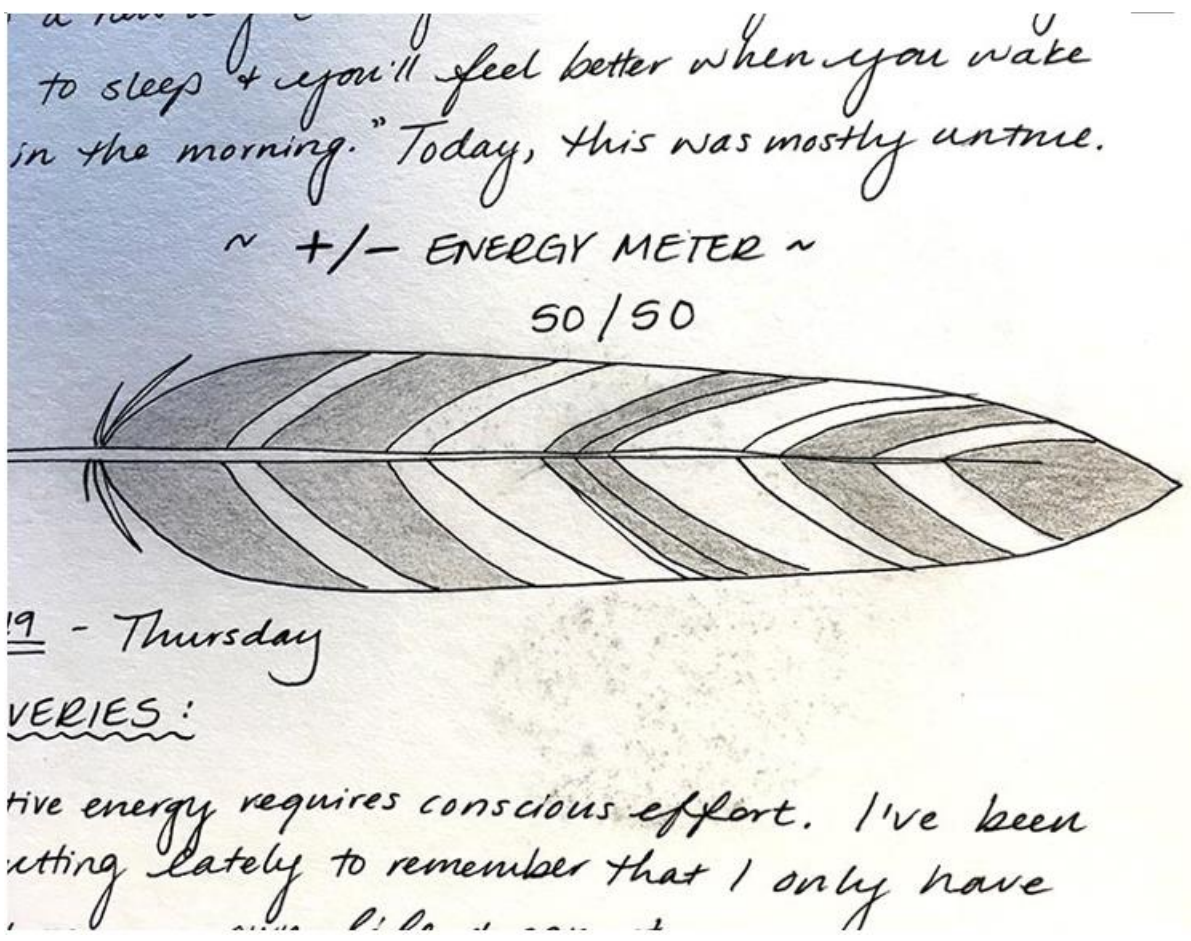 to sleep + you'll feel better when you wake
in the morning." Today, this was mostly untrue.
~ +/- ENERGY METER ~
50/50
19 - Thursday
VERIES:
tive energy requires conscious effort. I've been
utting lately to remember that I only have